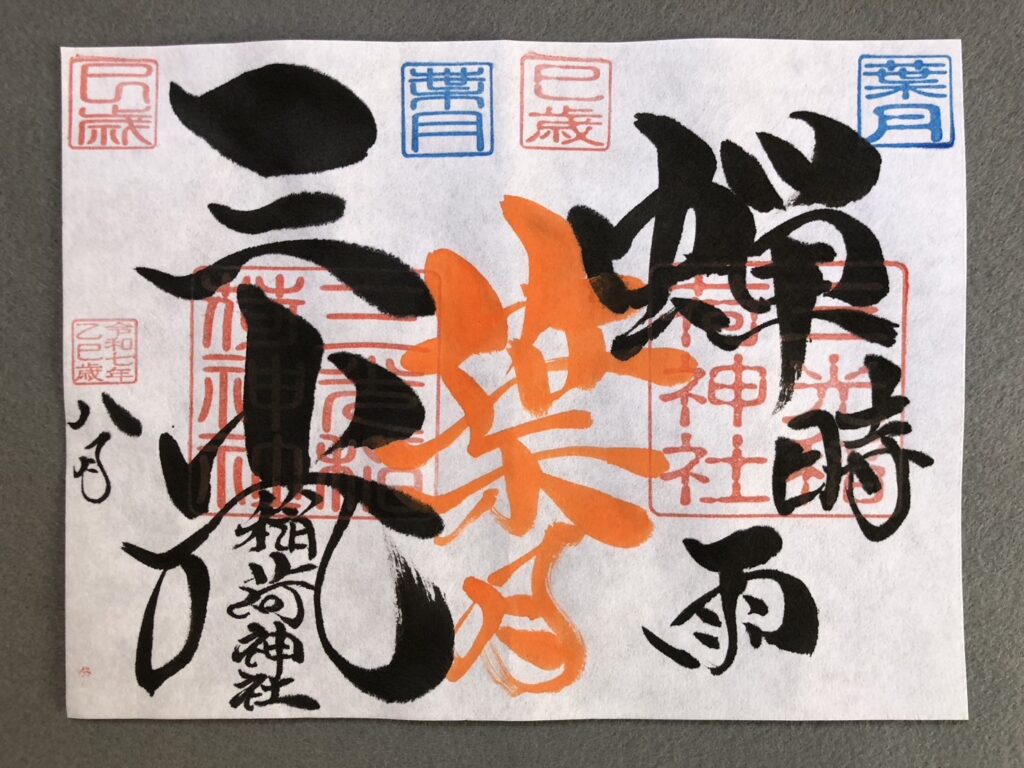 葉月
巳歳
葉月
巳歳
蝉時雨
三光稲荷神社
葉月
三光稲荷神社
三光稲荷神社
令和七年
乙巳歳
八月